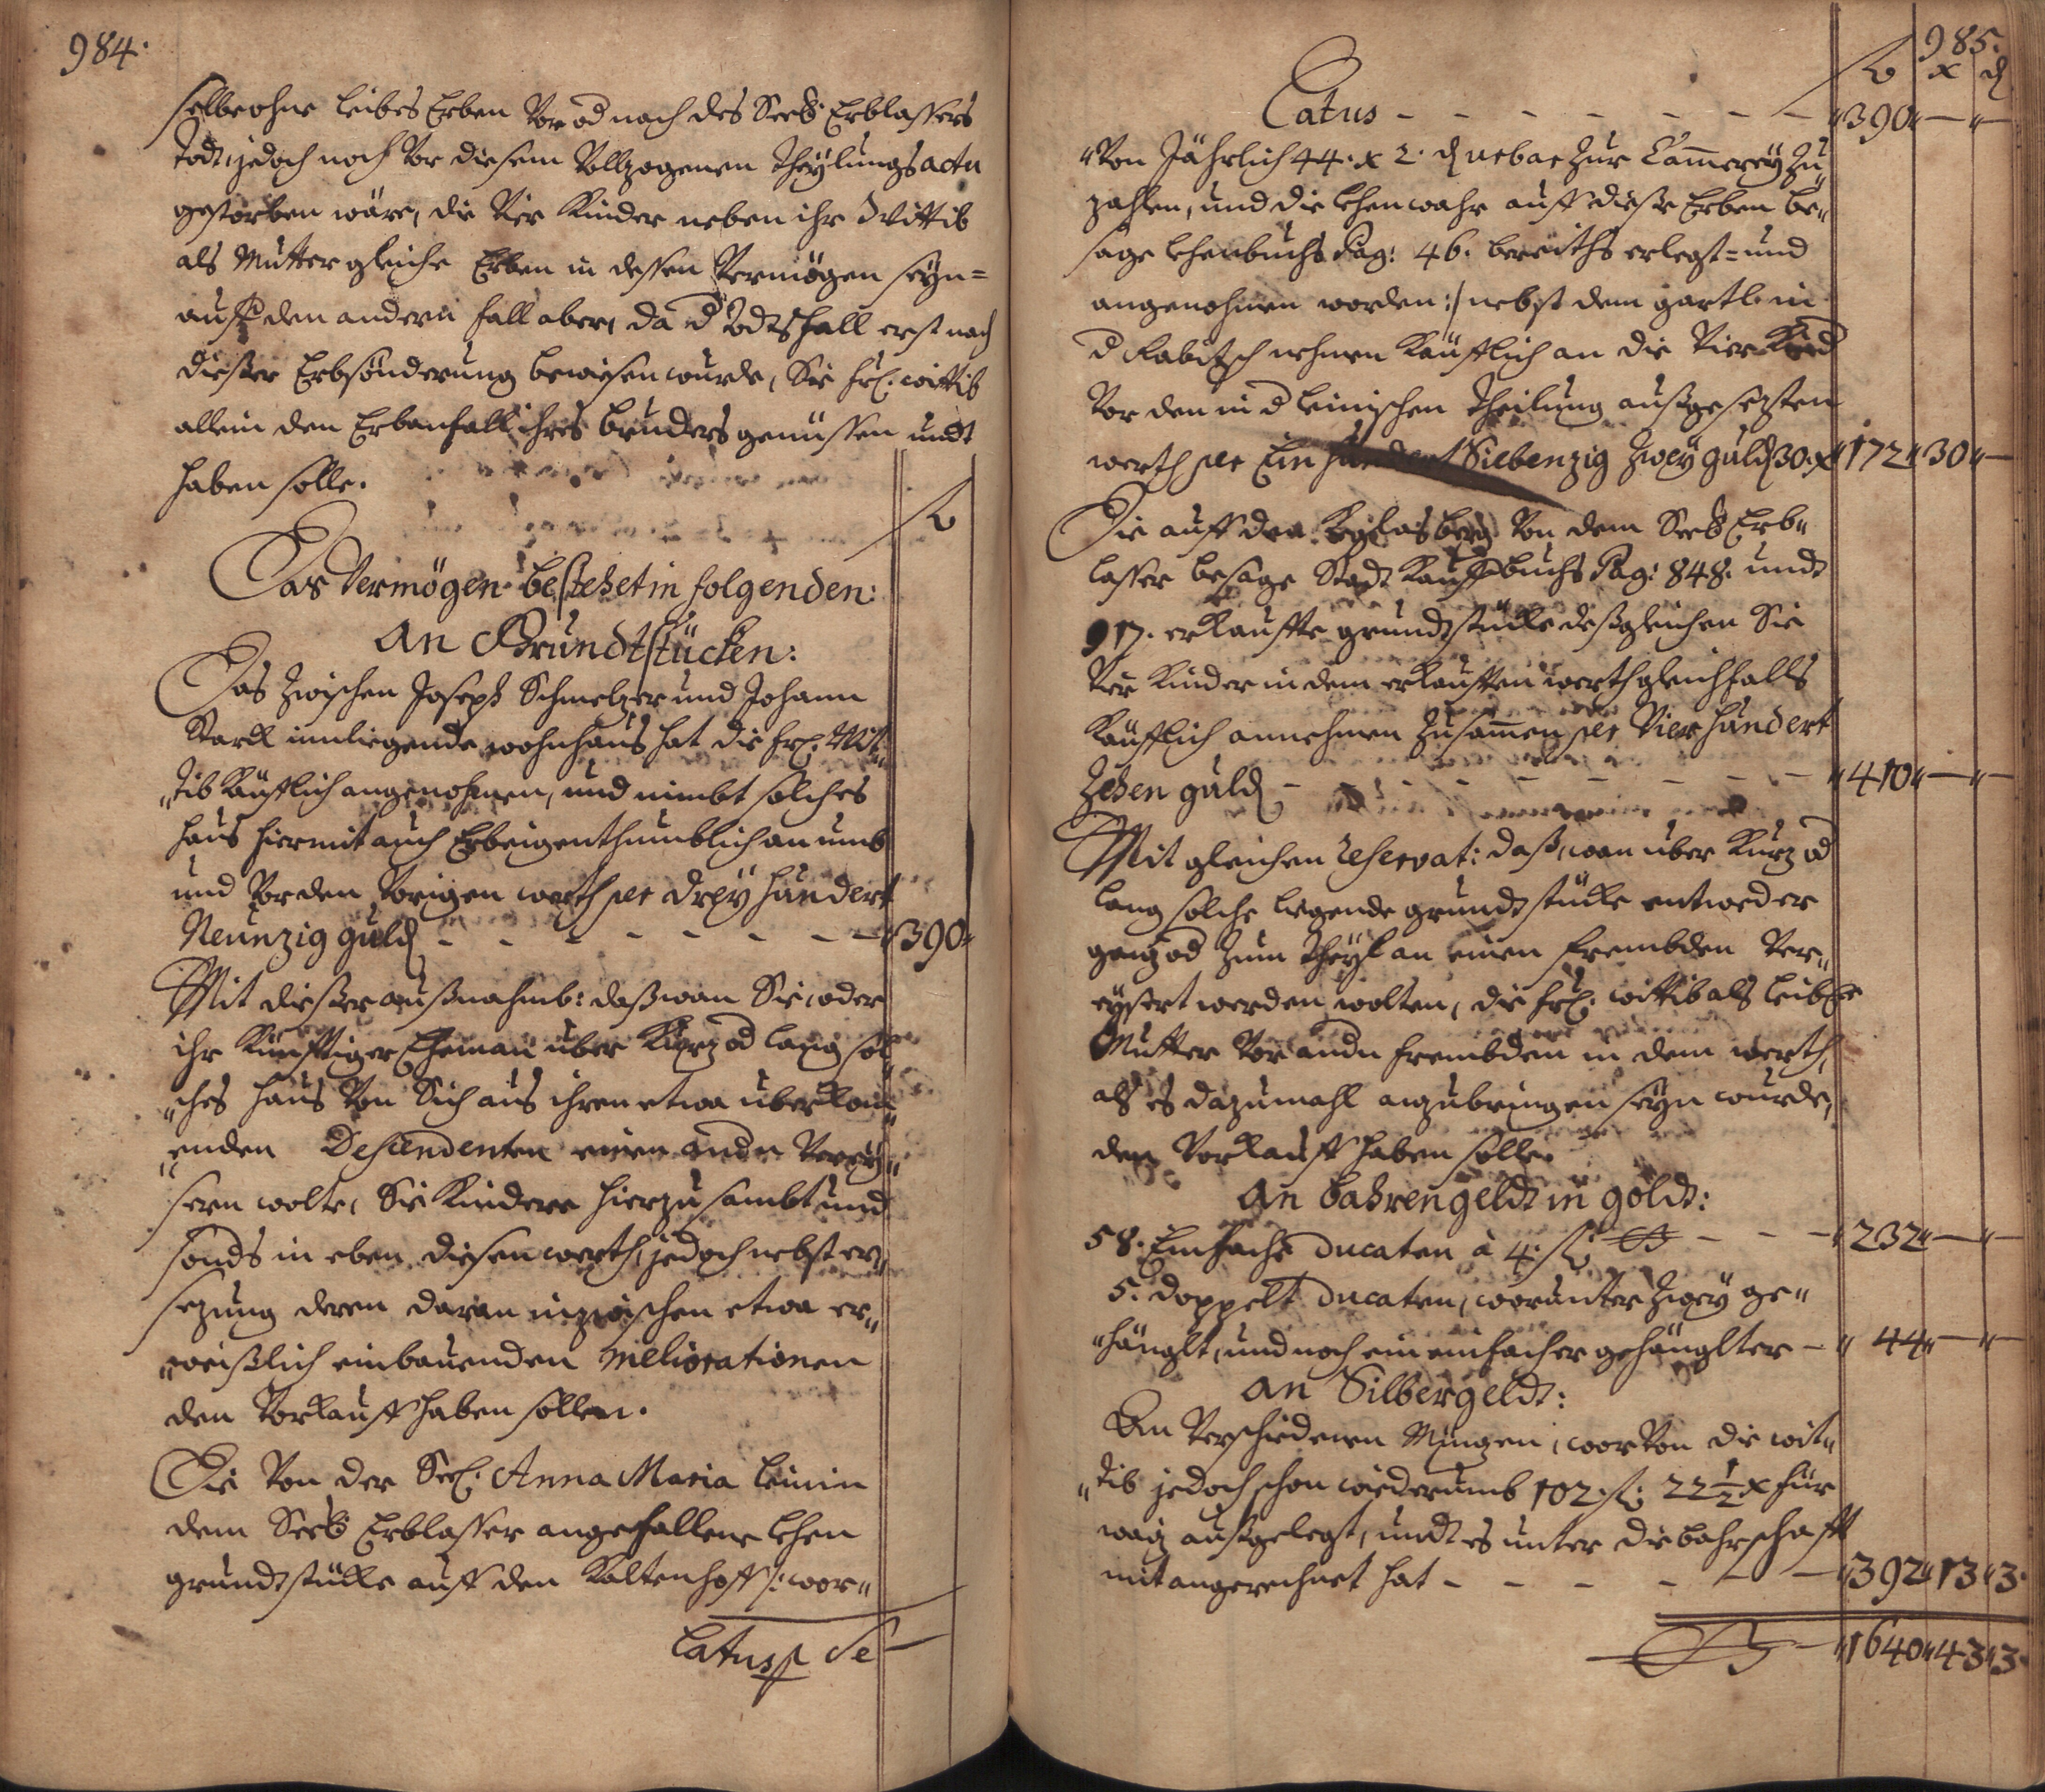 984.
selbe ohne leibes Erben Vor od nach des Seel: Erblassers
Todt, jedoch noch Vor diesem Vollzogenen Theylungs actu
gestorben wäre, die Vier Kinder neben ihr Wittib
als Mutter gleiche Erben in dessen Vermögen seyn=
auff den andern fall aber, da d Todtsfall erst nach
dießer Erbsönderung bewiesen wurde, Sie fr: wittib
allein den Erbanfall ihres bruders genüssen undt
haben solle.
fl
Das Vermögen bestehet in folgenden:
An Grundtstücken:
Das zwischen Joseph Schmelzer und Johann
Starck innliegende wohnhaus hat die fr: Wit„
„tib käufflich angenohmen, und nimbt solches
haus hiermit auch Erbeigenthumblich an umb
und Vor den Vorigen werth per drey hundert
Neunzig guld – – – – – – – „390„
Mit dießer außnahmb: daß wan Sie, oder
ihr künfftiger Ehemann über kurz od lang sol„
„ches haus Von Sich aus ihren etwa überkom„
„enden Descendenten einen andn Vereü„
sern wolte, Sie Kindere hierzu sambt und
sonds in eben diesen werth, jedoch nebst er„
sezung deren daran inzwischen etwa er„
„weißlich einbauenden meliorationen
den Vorkauff haben sollen.
Die Von der Seel: Anna Maria leinin
dem Seel: Erblasser angefallene lehen
grundtstücke auff den Kaltenhoff /: wor„
Latus per se
985.
fl x d
Latus – – – – – – – „390„—„—
„Von Jährlich 44. x 2. d urbar zur Cammerey zu„
zahlen, und die lehenwahr auff dieße Erben be„
sage lehenbuchs Pag: 46. bereiths erlegt= und
angenohmen worden :/ nebst dem gartl in
d Rabitsch nehmen käufflich an die Vier Kind
Vor den in d leinischen Theilung außgesezten
werth per Ein hundert Siebenzig Zwey guld 30. x „172„30„—
Die auff den berg Von dem Seel: Erb„
lasser besage Stadt Kauffbuchs Pag: 848. undt
917. erkauffte grundtstücke deßgleichen Sie
Vier Kinder in dem erkaufften werth gleichfalls
käufflich annehmen zusammen per Vier hundert
Zehen guld – – – – – – – „410„—„—
Mit gleichen reservat: daß, wan über kurz od
lang solche liegende grundtstücke entweder
ganz od zum theyl an einen frembden Ver„
eysert werden wolten, die fr: wittib als leibl:
Mutter Vor andn frembden in dem werth,
als es dazumahl anzubringen seyn wurde,
den Vorkauff haben solle.
An bahren geldt in goldt:
58. Einfache Ducaten à 4. fl – – – „232„—„—
5. doppelt Ducaten, worunter Zwey ge„
„hänglt, und noch ein einfacher gehänglter – „ 44„—„—
An Silbergeldt:
An Verschiedenen Münzen, worvon die wit„
„tib jedoch schon wiederumb 102. fl: 22 1/2 x für
waiz außgelegt, undt es unter die bahrschafft
mit angerechnet hat – – – – – – „392„13„3.
„1640„43„3.